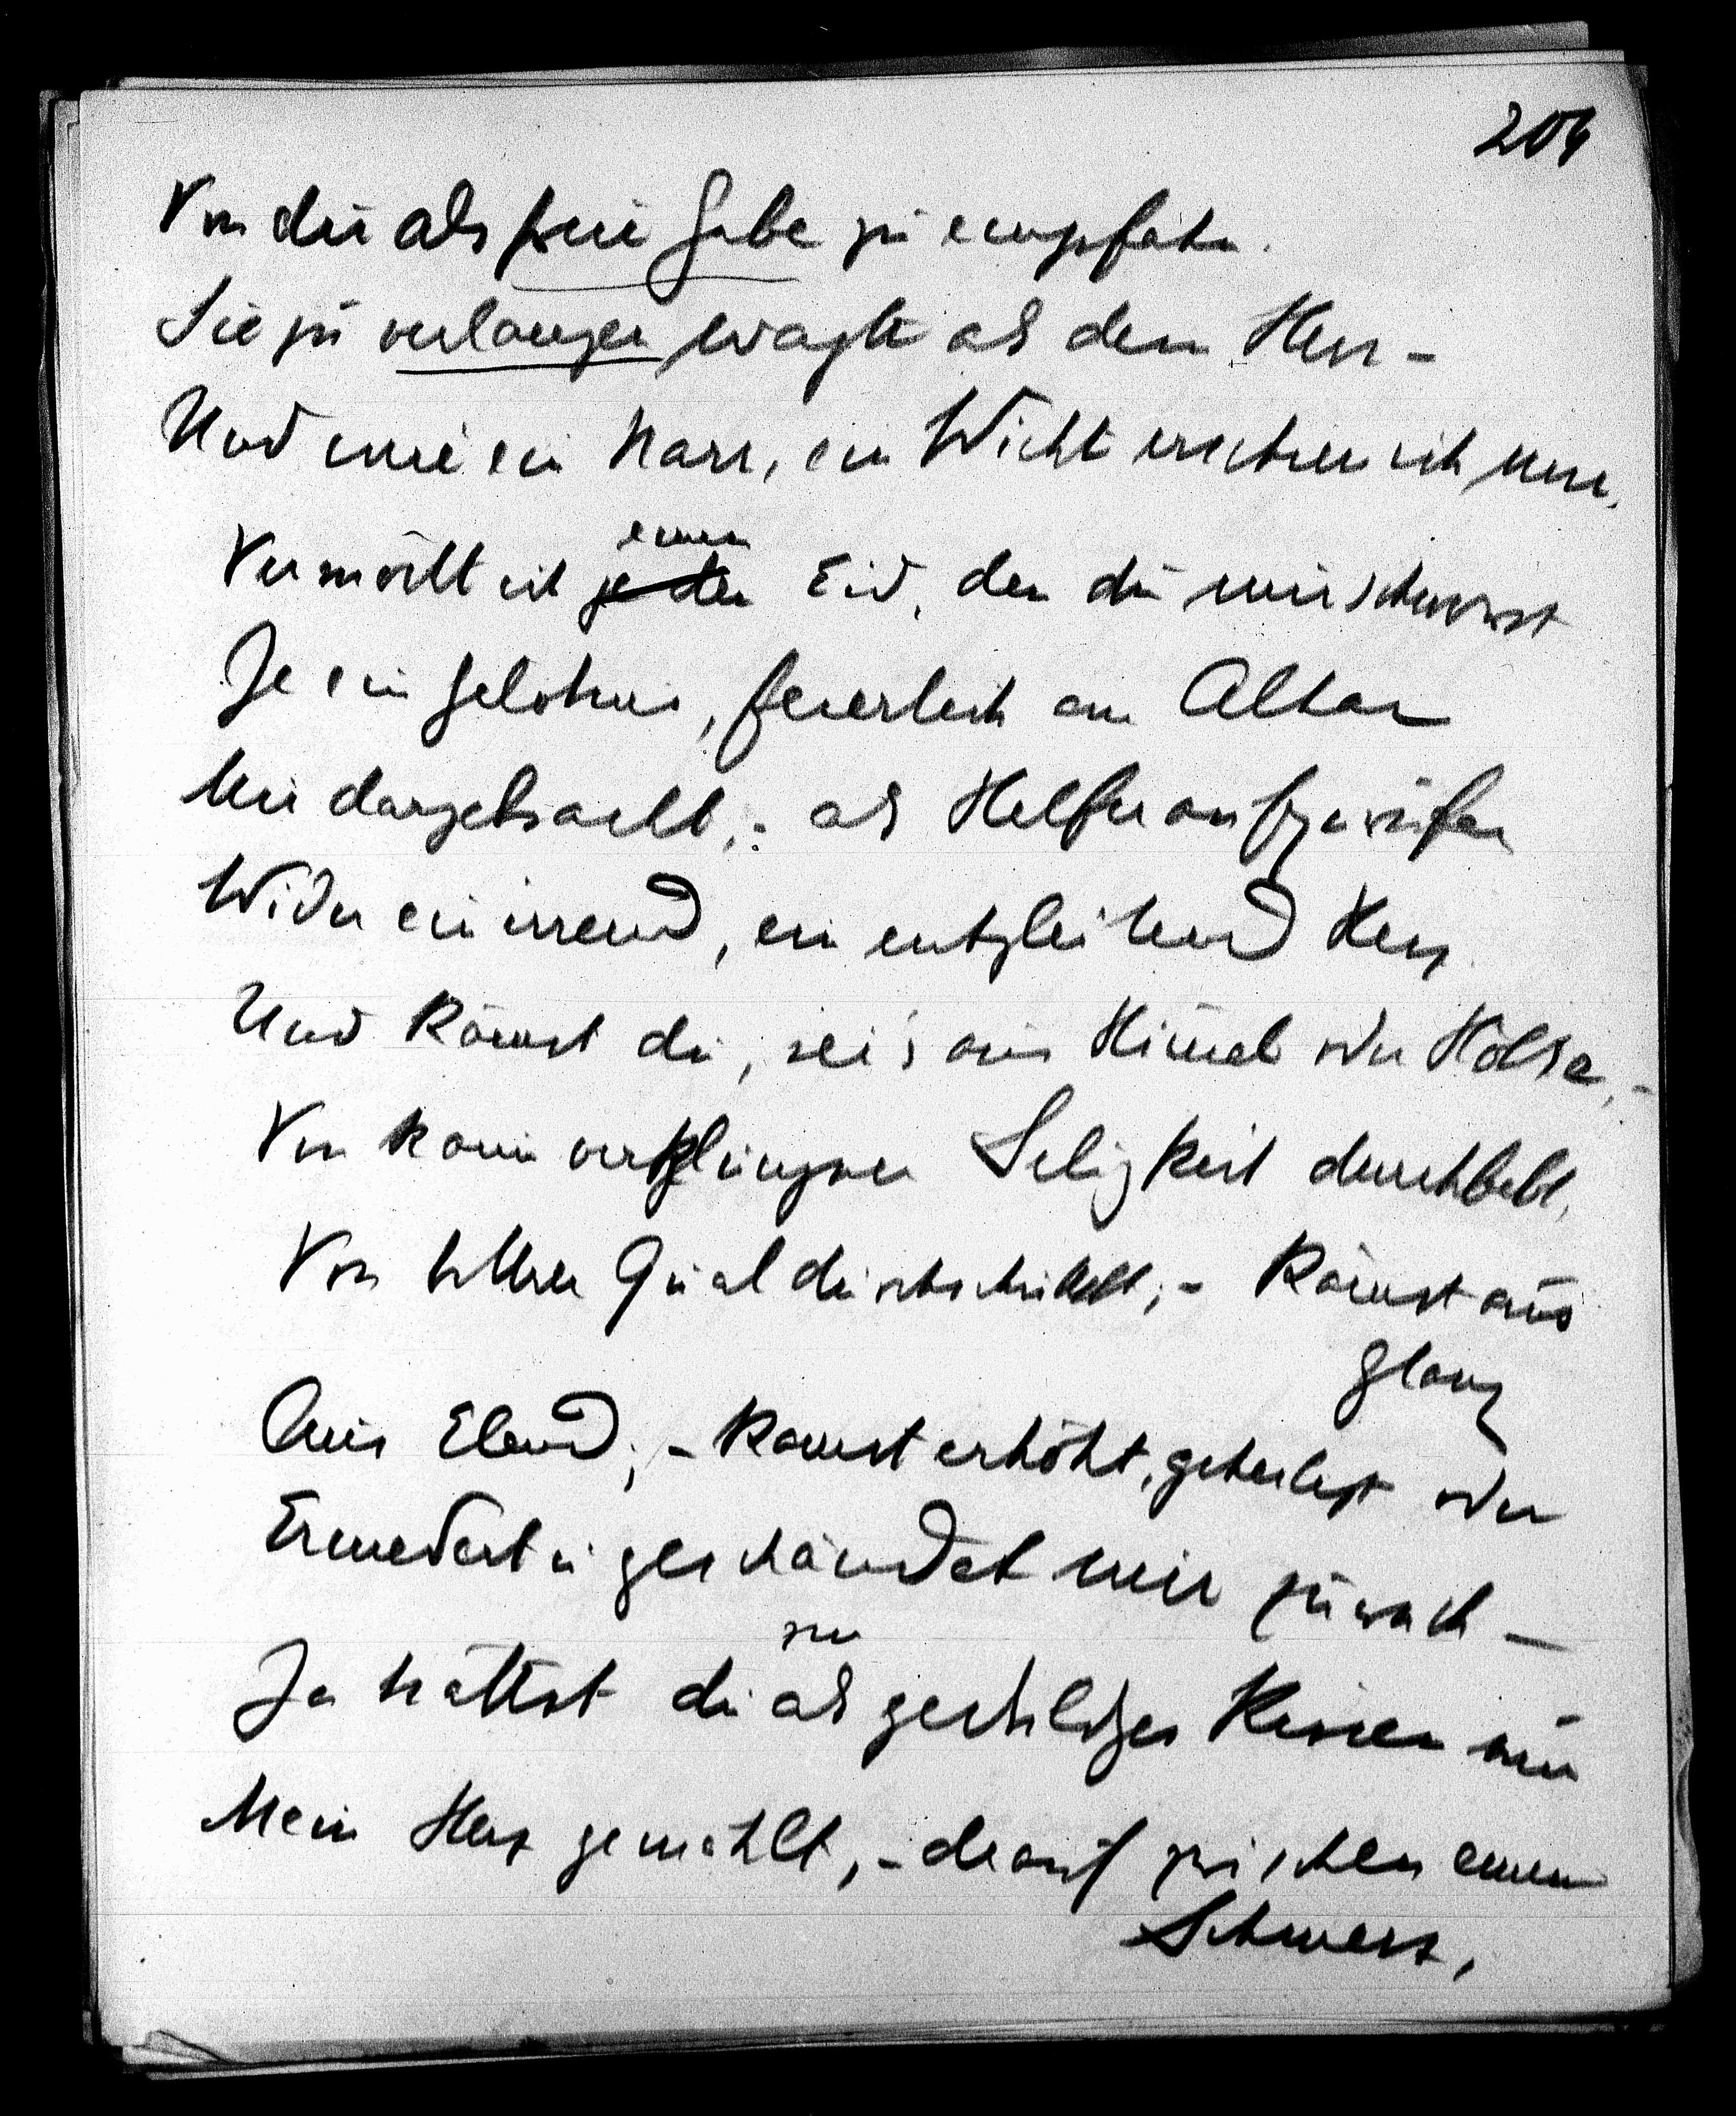 204
Von dir als freie Gabe zu empfahn.
Sie zu verlangen wagte als dein Herr –
Und wie ein Narr, ein Wicht erschien ich mir.
einen
Vermöcht ich jeden Eid, den du mir schworst
Je ein Gelöbnis, feierlich am Altar
Mir dargebracht,: als Helfer aufzurufen
Wider ein irrend, ein entgleitend Herz
Und kämst du, sei's aus Himmel oder Hölle, –
Von kaum verklungner Seligkeit durchbebt,
Von tollster Qual durchschüttelt; – kämst aus
Glanz
Aus Elend, – kamst erhöht, geheiligt oder
Erniedert u geschändet mir zurück –
nur
Ja hättst du als gefälliges Kissen nur
Mein Herz gewählt, – drauf zwischen einem
Schmerz,